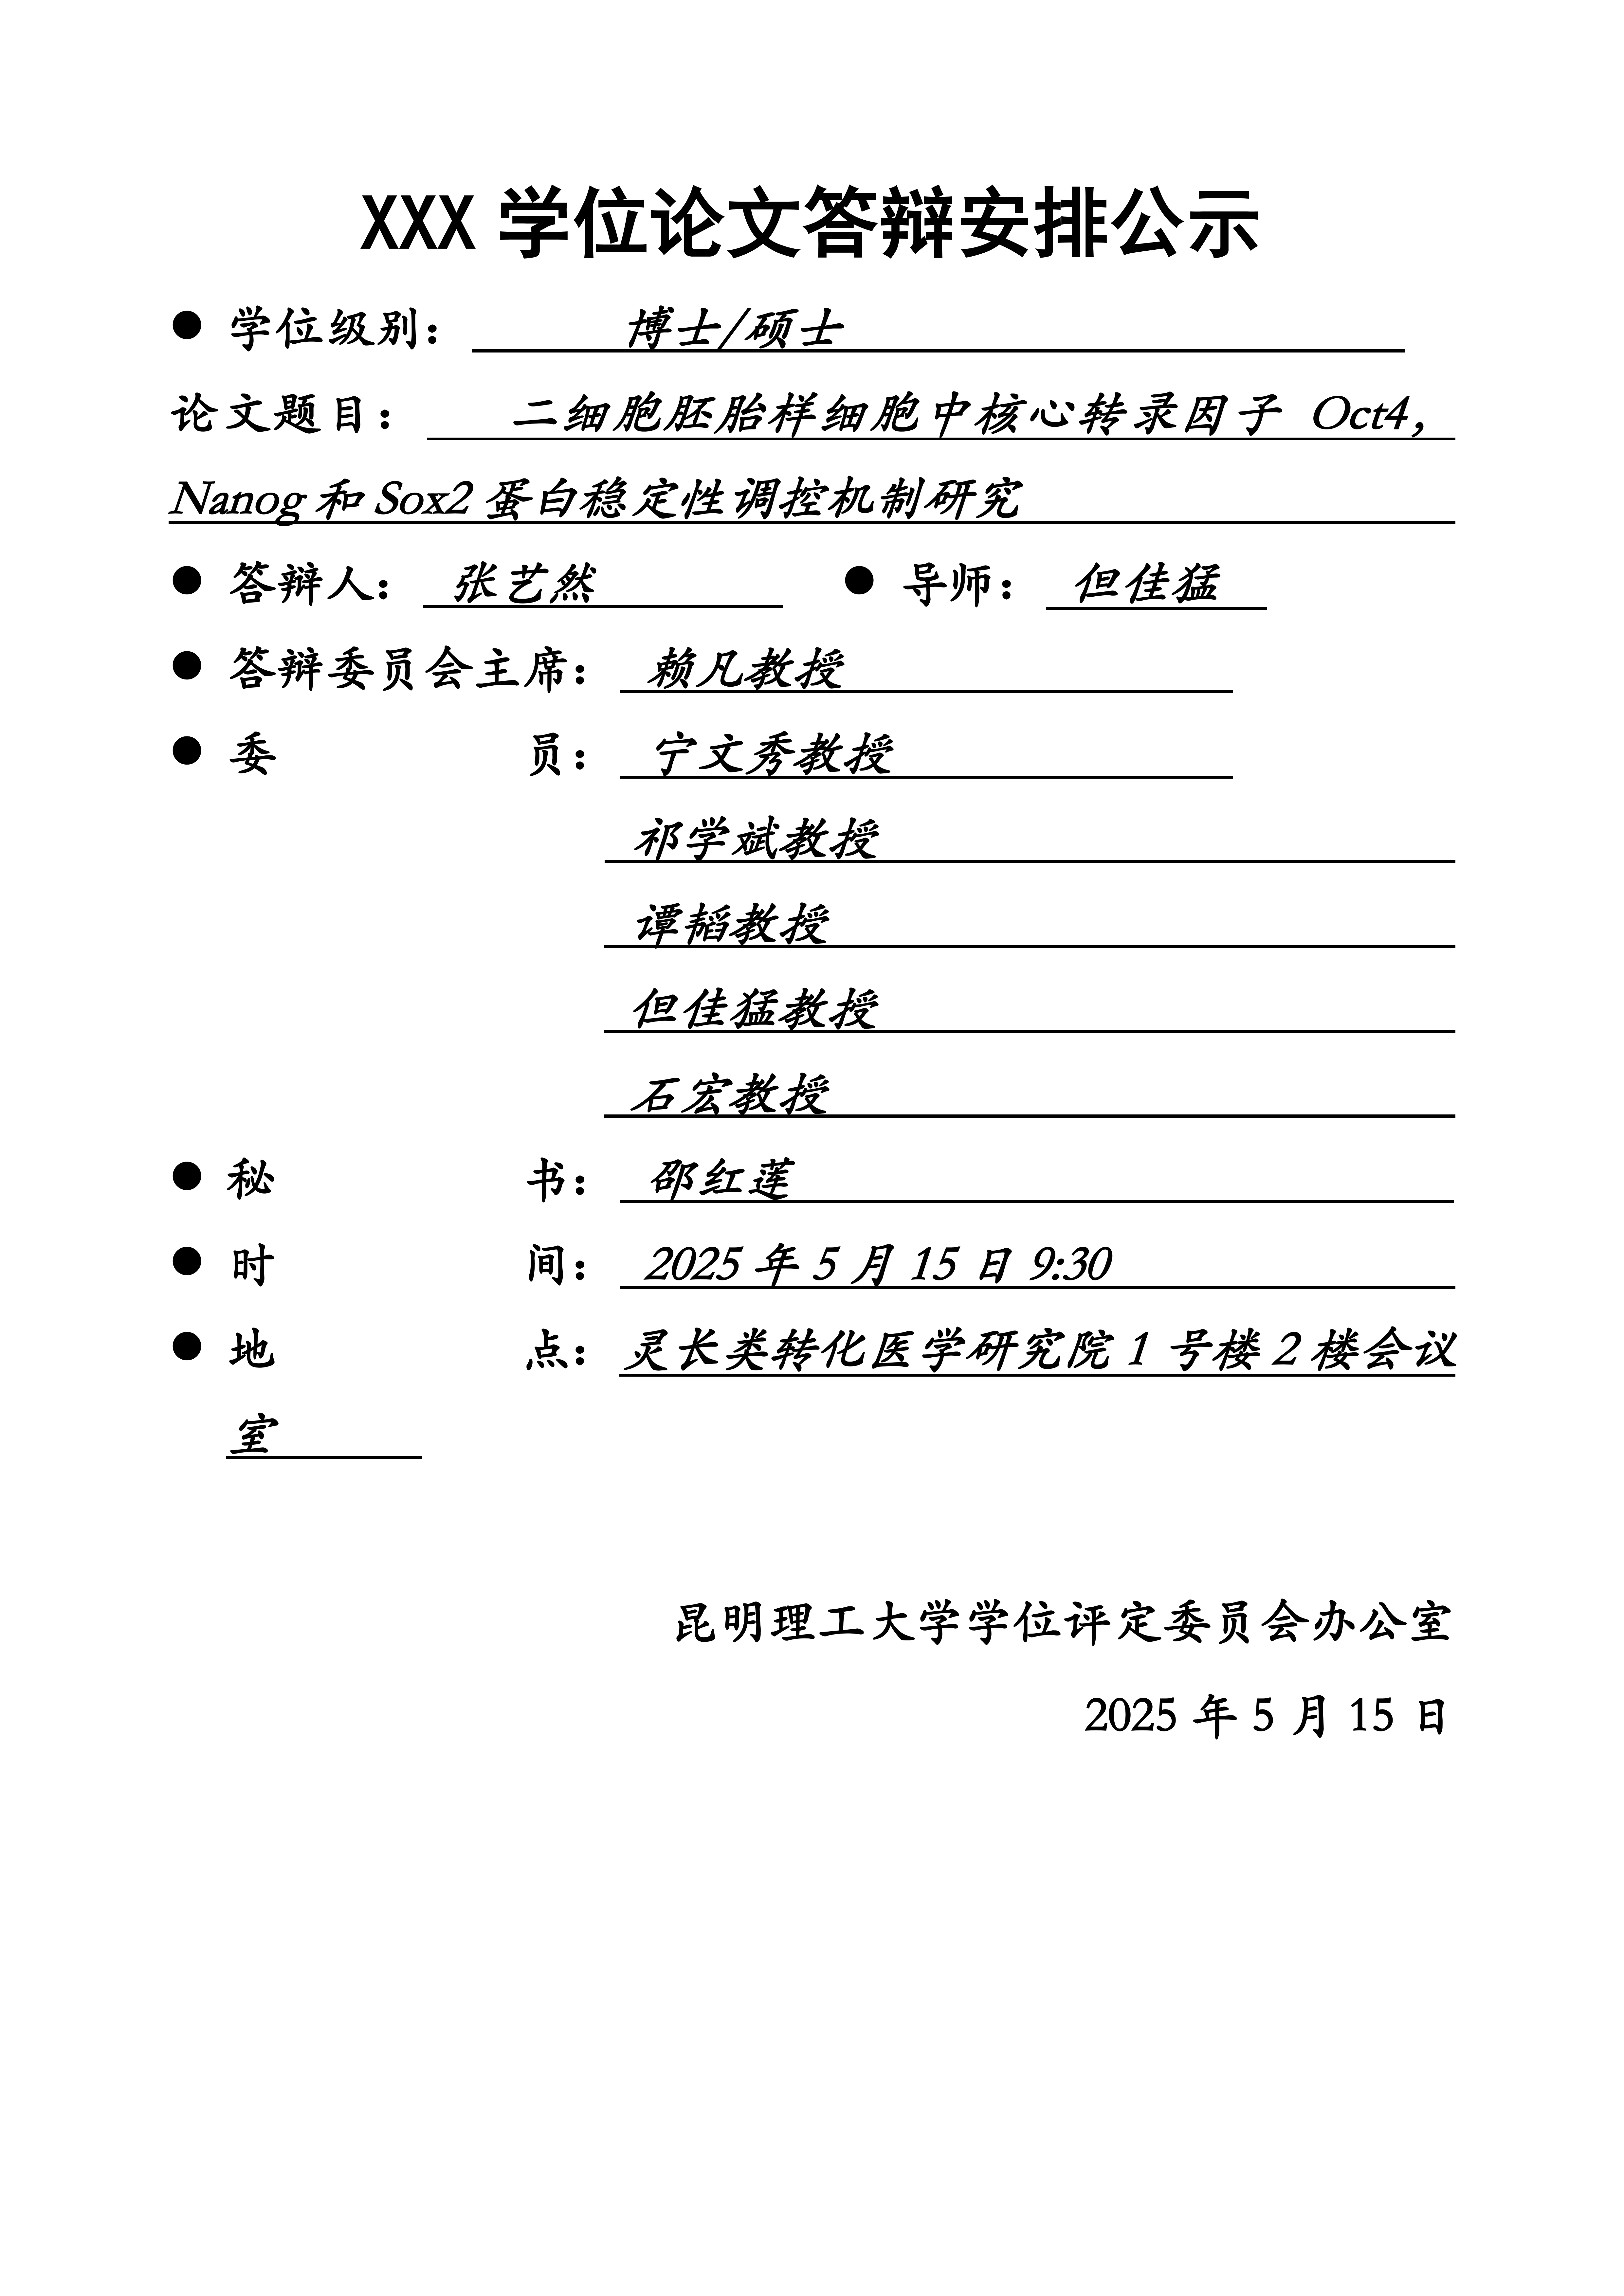 XXX 学位论文答辩安排公示
● 学位级别： 博士/硕士
论文题目： 二细胞胚胎样细胞中核心转录因子 Oct4，
Nanog 和 Sox2 蛋白稳定性调控机制研究
● 答辩人： 张艺然 ● 导师： 但佳猛
● 答辩委员会主席： 赖凡教授
● 委 员： 宁文秀教授
祁学斌教授
谭韬教授
但佳猛教授
石宏教授
● 秘 书： 邵红莲
● 时 间： 2025 年 5 月 15 日 9:30
● 地 点： 灵长类转化医学研究院 1 号楼 2 楼会议
室
昆明理工大学学位评定委员会办公室
2025 年 5 月 15 日